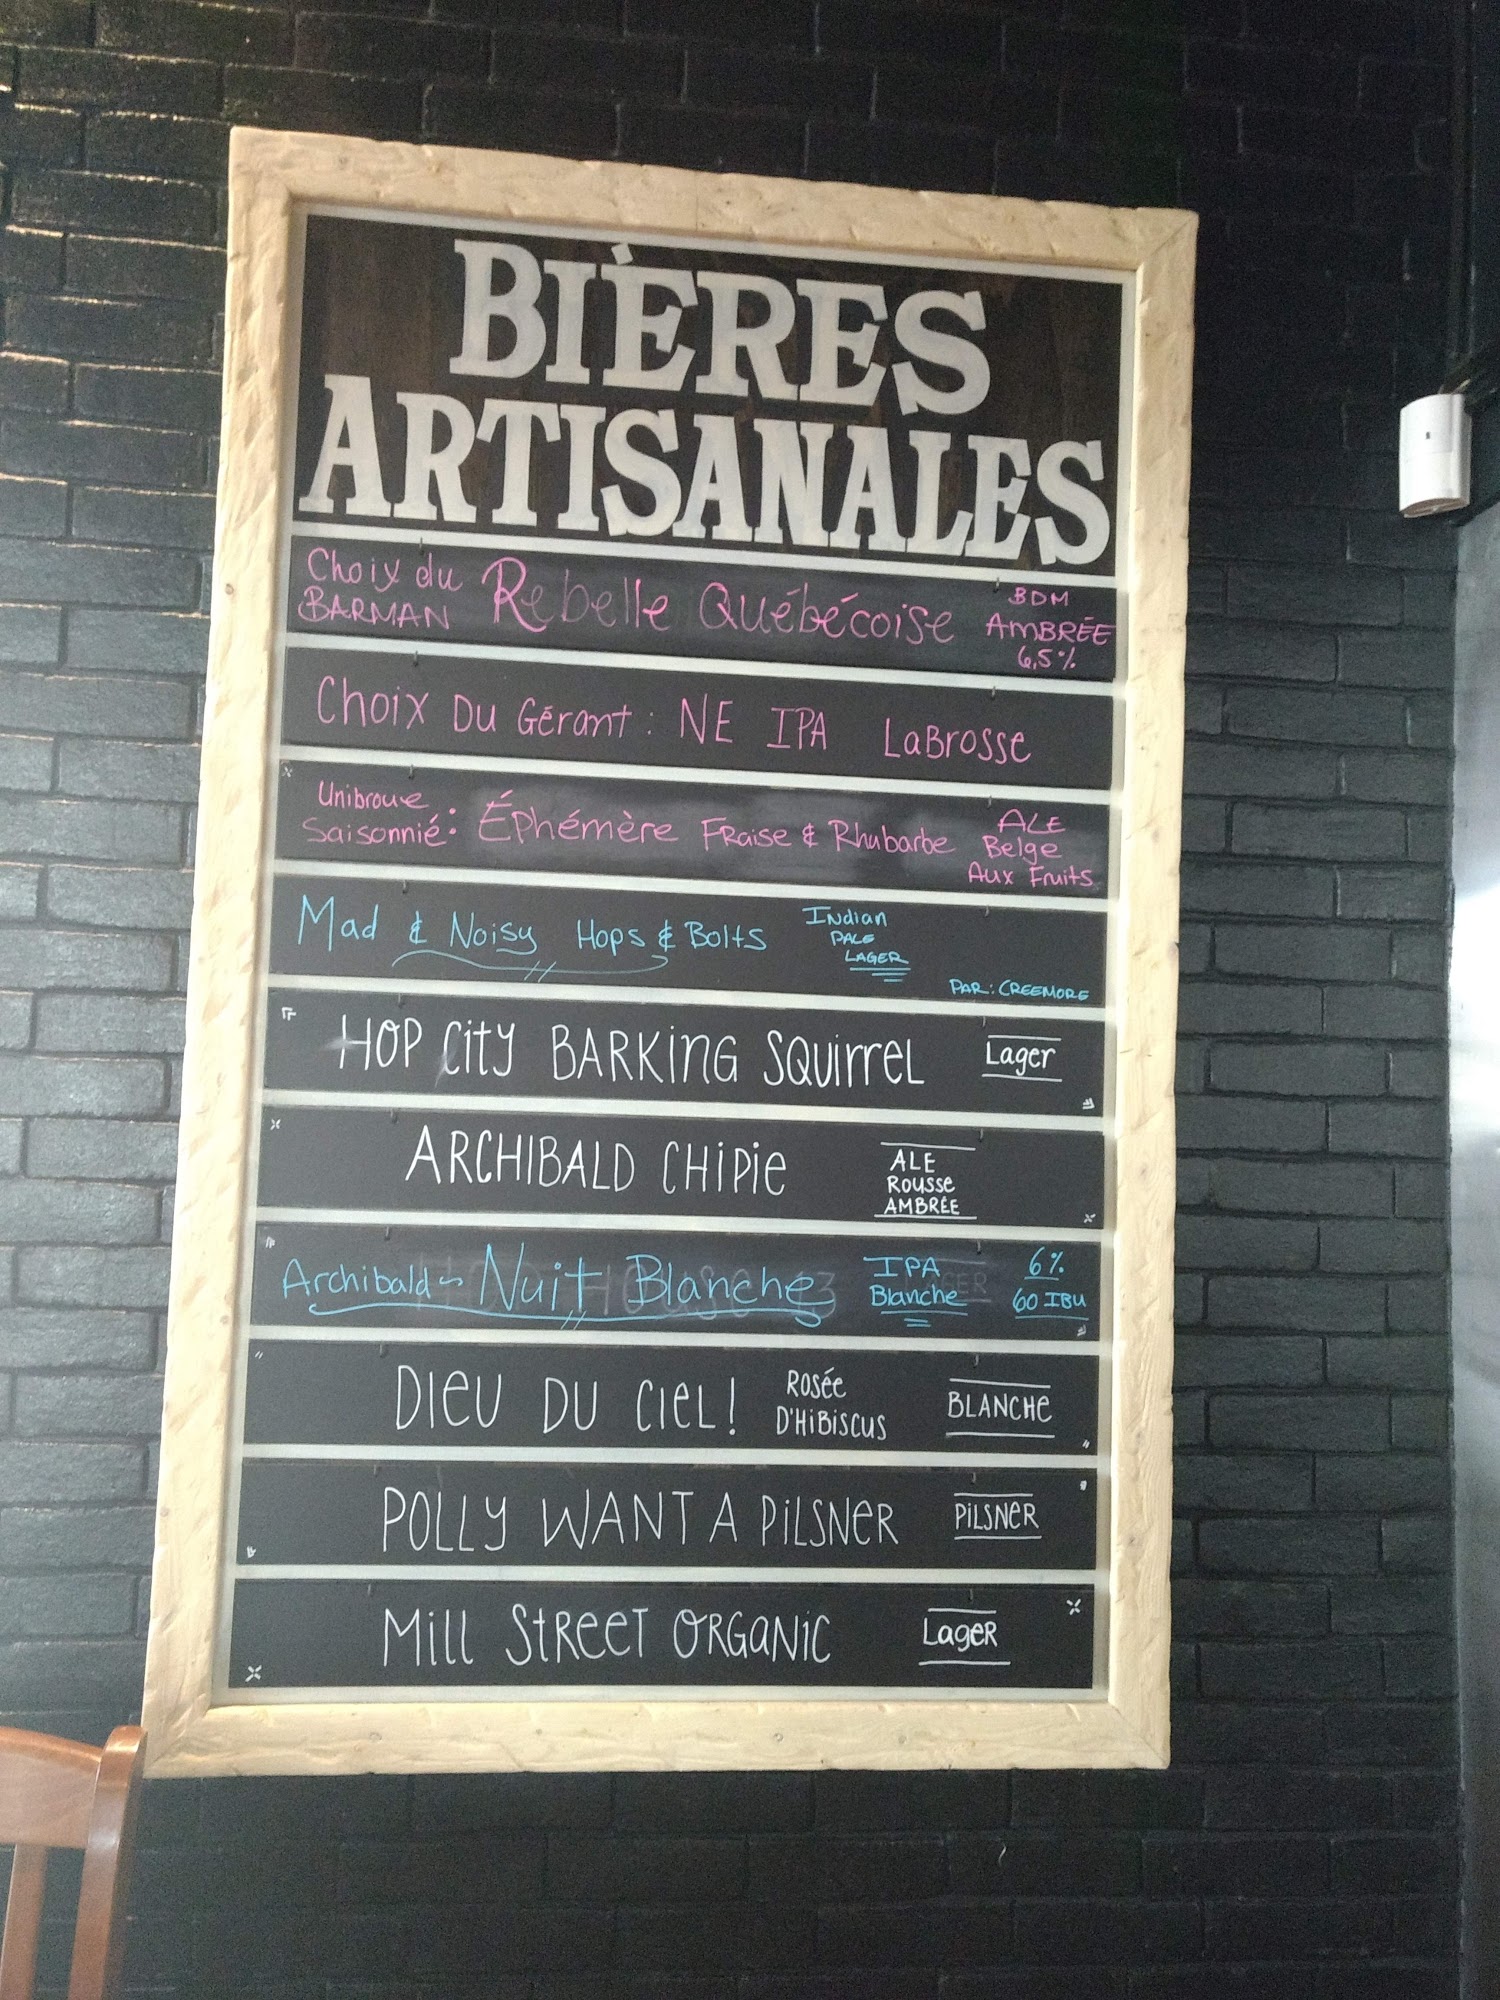 BIÈRES
ARTISANALES
Choix du BARMAN Rebelle Québécoise BDM AMBRÉE 6,5%
Choix Du Gérant : NE IPA LaBrosse
Unibroue Saisonnié : Éphémère Fraise & Rhubarbe ALE Belge Aux Fruits
Mad & Noisy Hops & Bolts Indian PALE LAGER PAR : CREEMORE
HOP City BARKING SQUIRREL Lager
ARCHIBALD CHIPIE ALE ROUSSE AMBRÉE
Archibald~ Nuit Blanche IPA Blanche 6% 60 IBU
DIEU DU CIEL! ROSÉE D'HIBISCUS BLANCHE
POLLY WANT A PILSNER PILSNER
MILL STREET ORGANIC LAGER